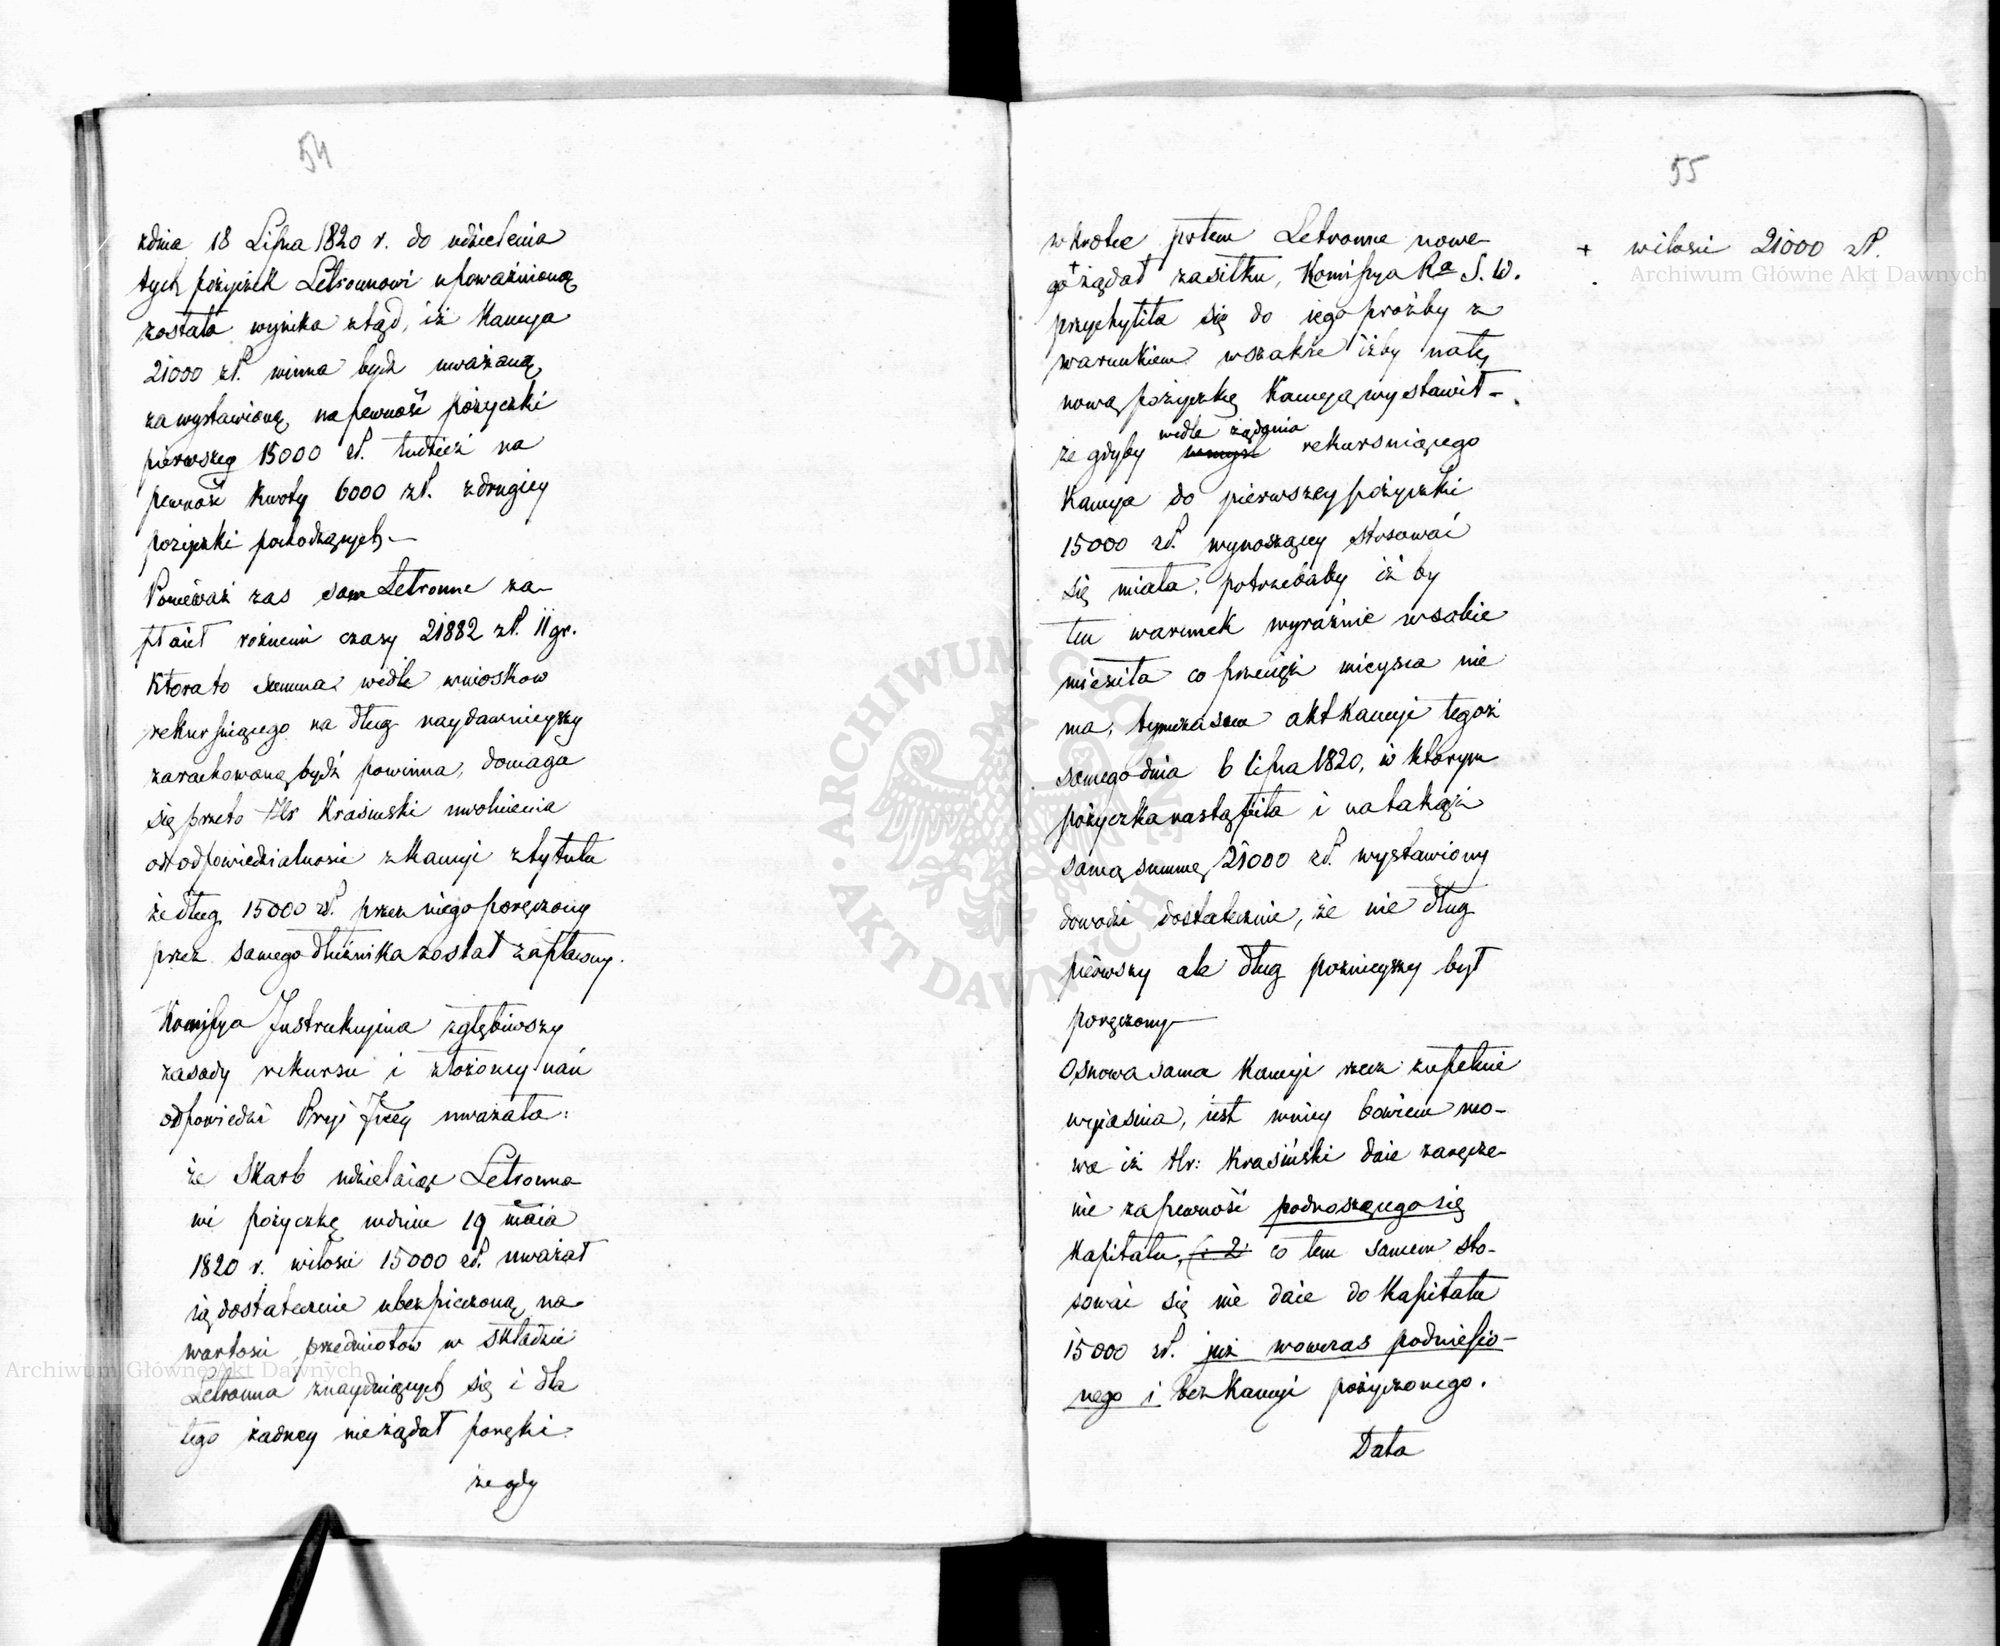 54
zdnia 18 Lipca 1820 r. do udzielenia
tych pożyczek Letronnowi upoważnioną
została, wynika ztąd, iż Kaucya
21000 zł. winna bydź uważaną,
za wystawioną na pewność pożyczki
pierwszey 15000 zł. tudzież na
pewność kwoty 6000 zł. zdrugiey
pożyczki pochodzących.—
Ponieważ zas sam Letronne za-
płacił rożnemi czasy 21882 zł. 11 gr.
Ktorato summa wedle wniosków
rekursuiącego na dług naydawnieyszy
zarachowaną bydź powinna, domaga
się przeto Hr Krasiński uwolnienia
ododpowiedzialnosci zkaucyi ztytułu
że dług 15000 zł. przez niego poręczony
przez samego dłużnika został zapłacony.
Komissya Instrukcyina zgłębiwszy
zasady rekursu i złożoney nań
odpowiedzi Pryi Jney uważała:
że Skarb udzielaiąc Letronno-
wi pożyczkę wdniu 19 maia
1820 r. wilości 15000 zł. uważał
ią dostatecznie ubezpieczoną na
wartosci przedmiotow w składzie
Letronna znayduiących się i dla
tego żadney nieżądał poręki
że gdy
55
wkrotce potem Letronne nowe-
go + żądał zasiłku, Komissya Ra S. W.
przychyliła się do iego prośby z
warunkiem wszakże iżby natę
nową pożyczkę Kaucyą wystawił –.
wedle żądania
że gdyby rekursuiącego
Kaucya do pierwszey pożyczki
15000 zł. wynoszącey stosować
się miała, potrzebaby iż by
ten warunek wyraźnie wsobie
mieściła co przecięż mieysca nie
ma, tymczasem akt Kaucyi tegoż
samego dnia 6 lipca 1820, w którym
pożyczka nastąpiła i na takąż
samą summę 21000 zł. wystawiony
dowodzi dostatecznie, że nie dług
pierwszy ale dług poznieyszy był
poręczony—
Osnowa sama Kaucyi rzecz zupełnie
wyiasnia, iest wniey bowiem mo-
wa iż Hr: Krasiński daie zaręcze-
nie zapewność podnoszącego się
Kapitału, (: 2: co tem samem sto-
sować się nie daie do Kapitału
15000 zł. już wowczas podniesio-
nego i bez Kaucyi pożyczonego.
Data
+ wilosci 21000 zł.
Archiwum Główne Akt Dawnych
Archiwum Główne Akt Dawnych
ARCHIWUM GŁÓWNE AKT DAWNYCH